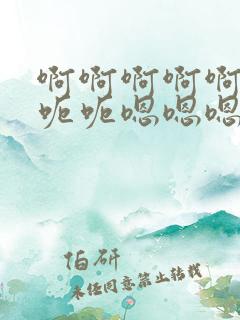 啊啊啊啊啊
呃呃嗯嗯嗯
伯研
未经同意禁止转载